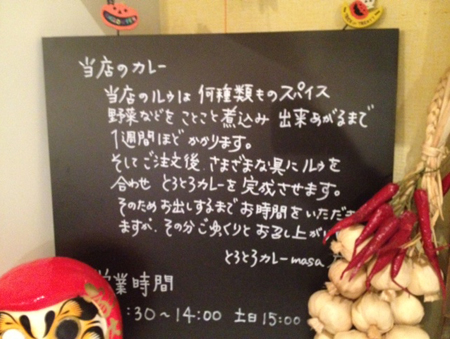 当店のカレー
当店のルゥは 何種類ものスパイス
野菜などを ことこと煮込み 出来あがるまで
1週間ほど かかります。
そして ご注文後、さまざまな具に ルゥを
合わせ とろとろカレーを 完成させます。
そのため お出しするまで お時間を いただき
ますが、その分 ごゆっくりと お召し上が
とろとろカレー masa
営業時間
:30～14:00 土日 15:00